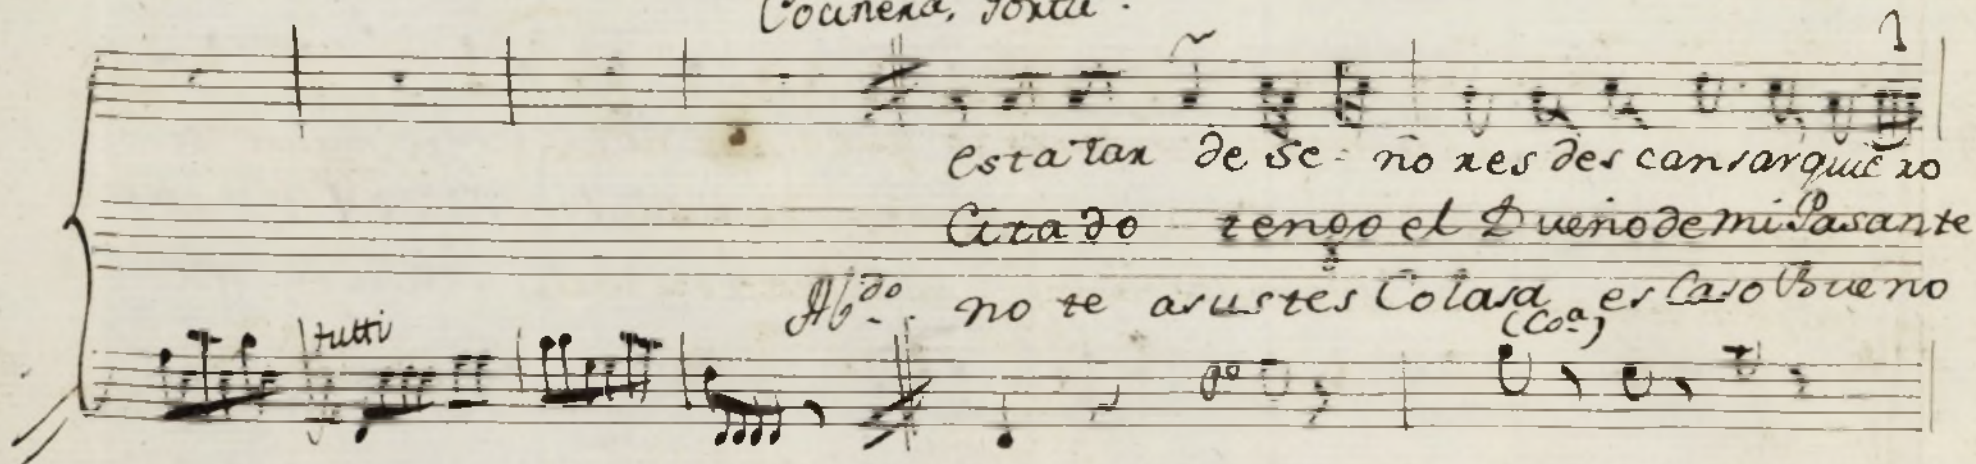 Cocinera, Sorda.
1
esta tar de Se- ño res des cansar quie ro
Cita do tengo el Dueño de mi Pasante
Ab.do no te asustes Colasa es Caso Bueno
(Coa)
tutti
po